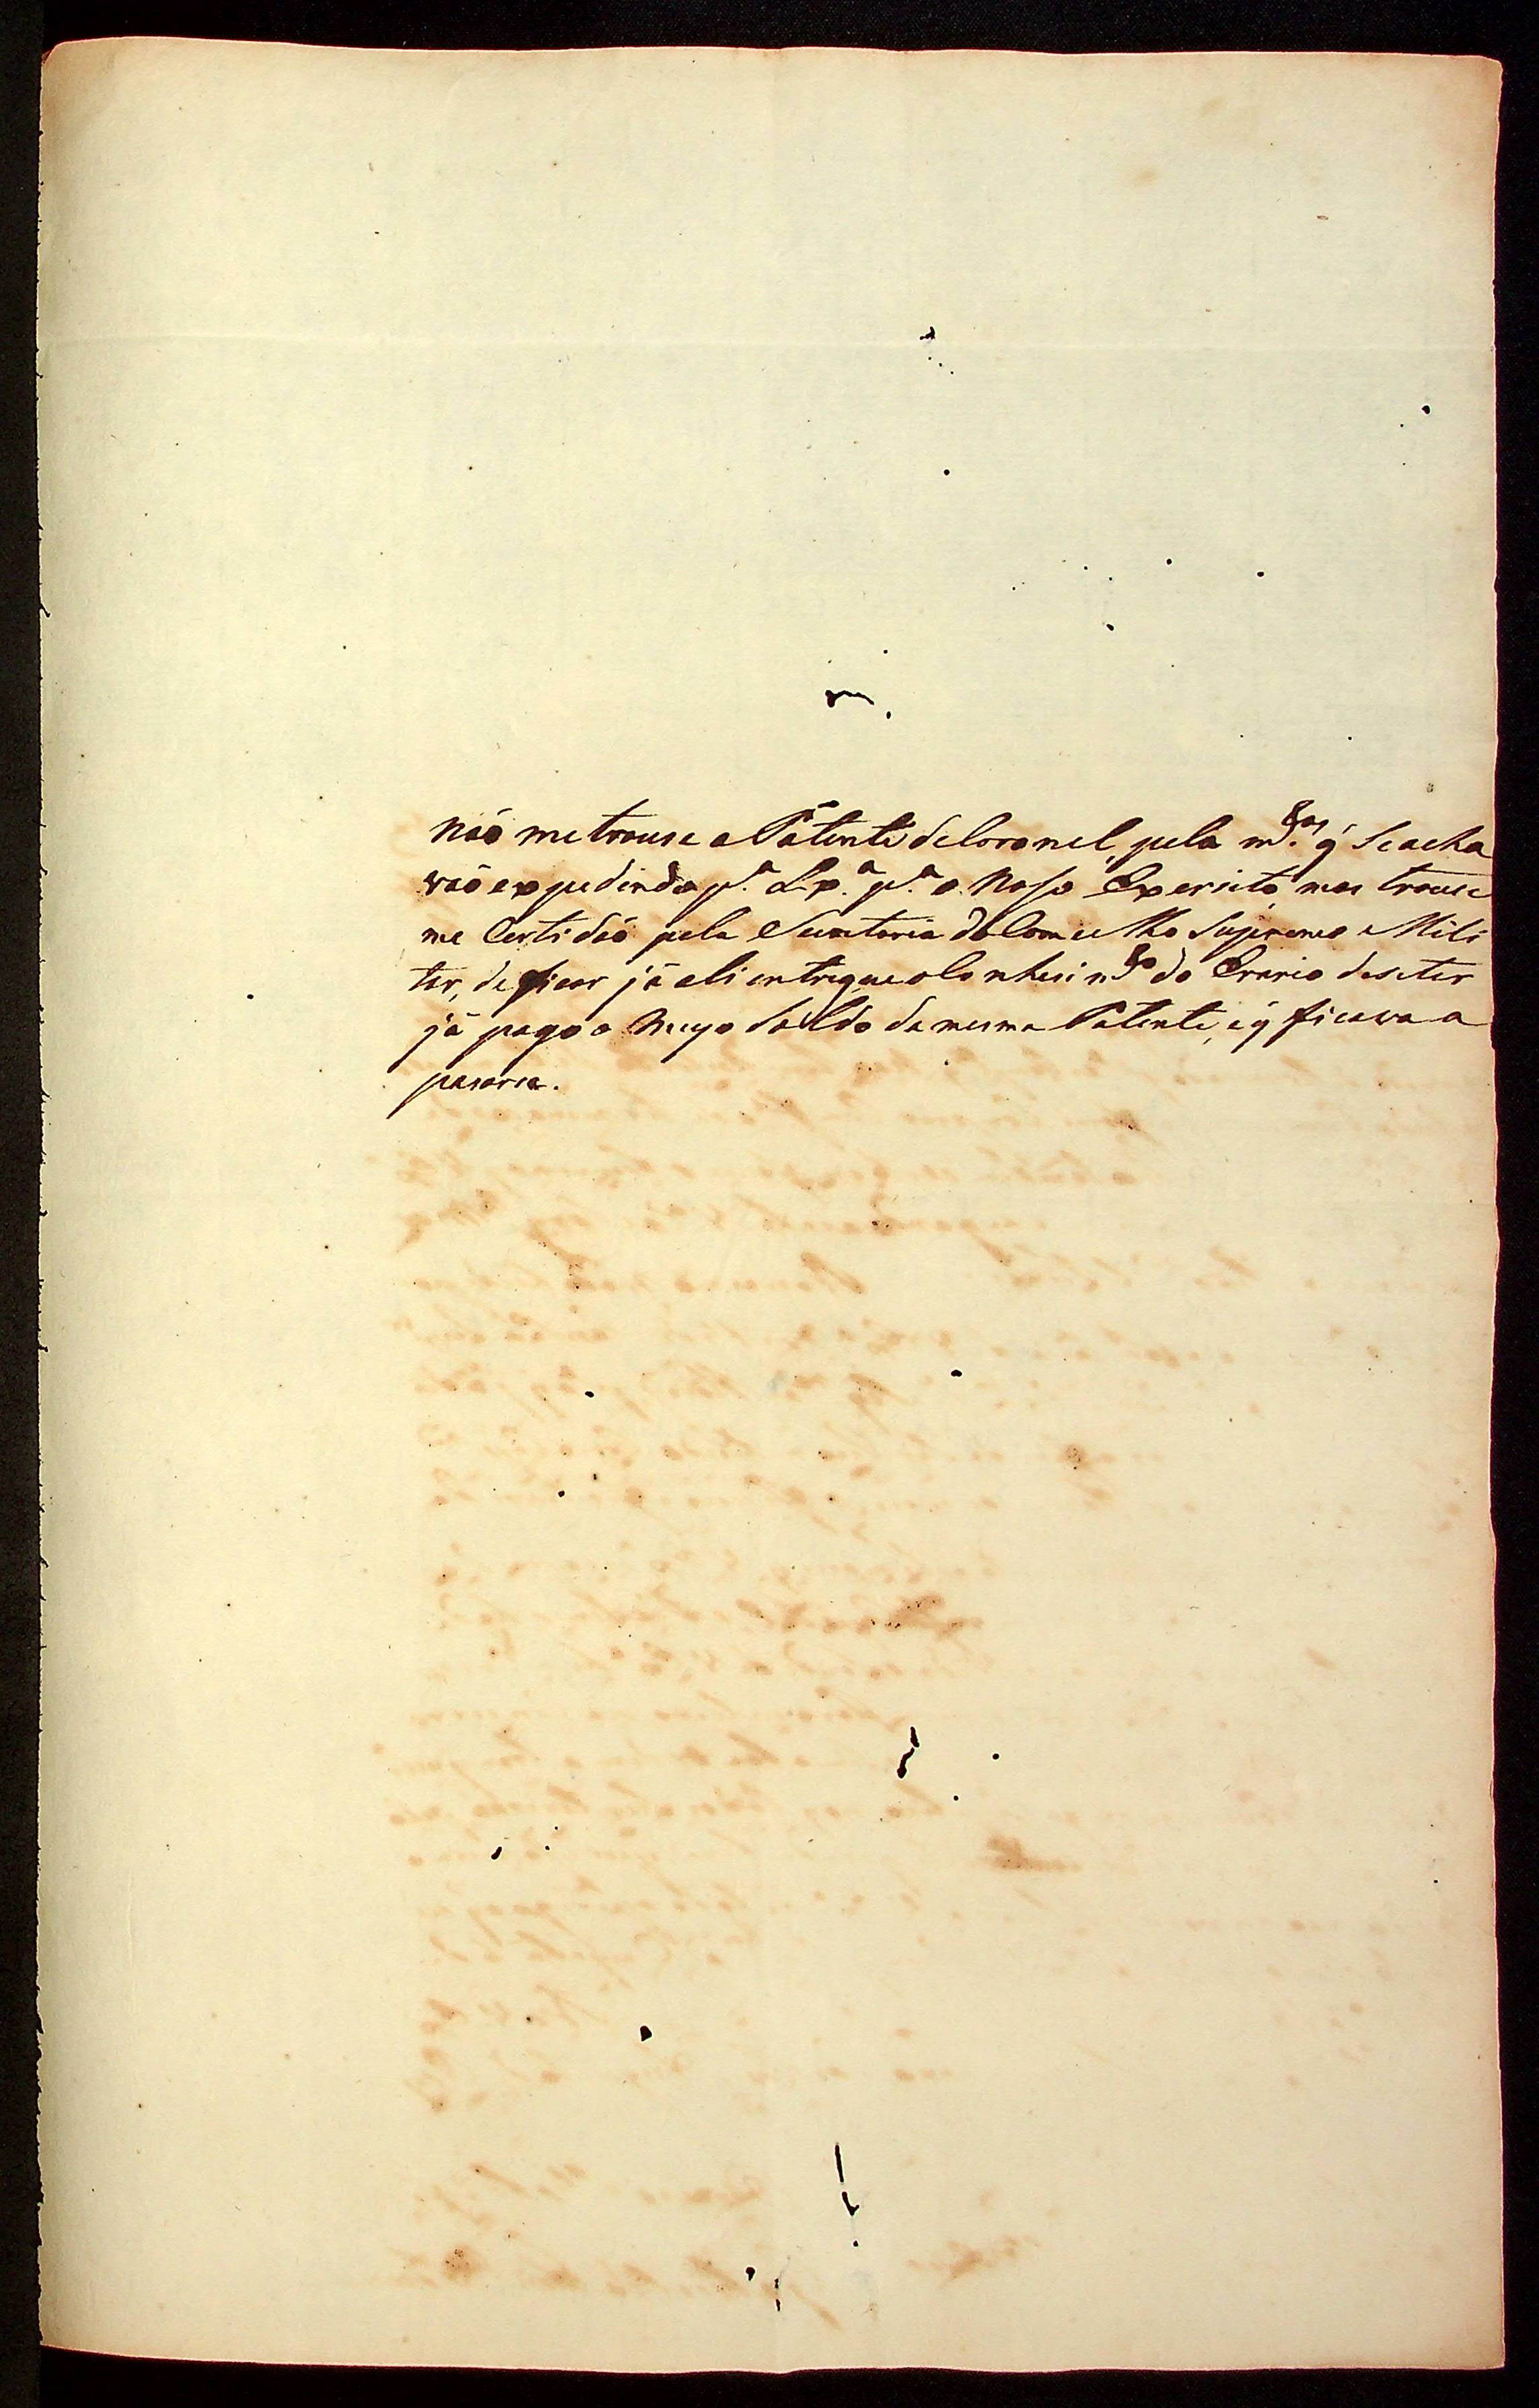 Não me trouse a Patente de Coronel, pela m.tas q̃ Se acha
vaõ expedindo p.ª Lx.ª p.ª o Noso Exersito, mas trouse
me Certidaõ pela Secretaria do Comcelho Supremo Mili
tar, de ficar já ali entregue o Conhesim.to do Erario de se ter
já pago o Meyo Soldo da mesma Patente, e q̃ ficava a
pasarsse.